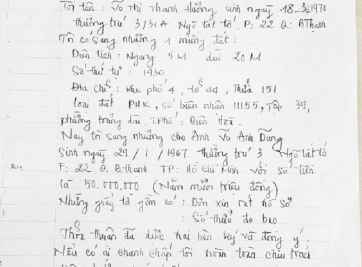 Tôi tên: Võ Thị Thanh Hường, sinh ngày 18-3-1970
thường trú 3/31A Ngô tất tố, P: 22 Q: B.Thạnh
Tôi có sang nhượng 1 miếng đất:
Diện tích: Ngang 5M dài 20M
Số thứ tự: 1930
Địa chỉ: khu phố 4, tổ 44, Thửa 151
Loại đất ĐMK, số biên nhận 11155, Tập 39,
phường trảng dài T.Phố: Biên Hòa.
Nay tôi sang nhượng cho Anh Vũ Anh Dũng
Sinh ngày 29/1/1967 Thường trú 3 Ngô tất tố
F: 22 Q. B.thạnh TP: Hồ chí Minh với số tiền
là 50.000,000 (Năm mươi triệu đồng)
Những giấy tờ gồm có: Đơn xin rút hồ sơ
: Sơ đồ đo bao
Thỏa thuận đã được hai bên ký và đồng ý.
Nếu có ai tranh chấp tôi hoàn toàn chịu trách